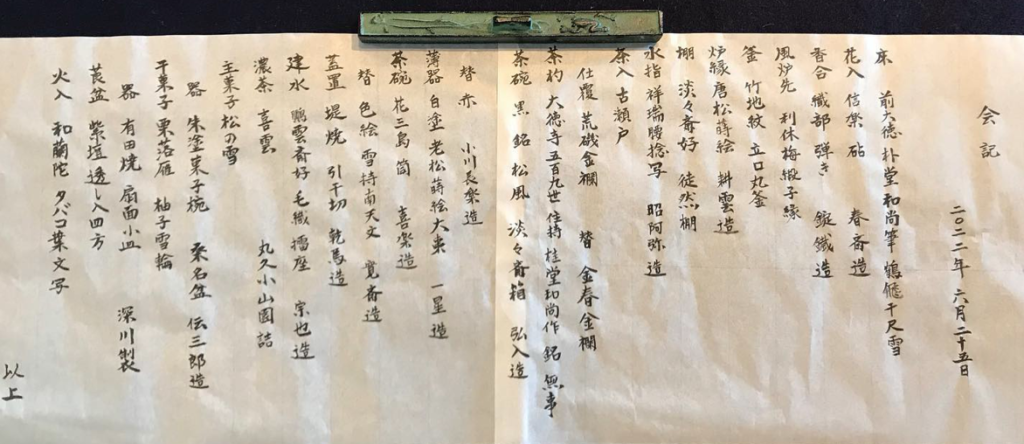 会記
二〇二二年 六月二十五日
床 前大徳 朴堂和尚筆 鶴飛千尺雪
花入 信楽 砧 春斎造
香合 織部 弾き 錠鐵造
風炉先 利休梅緞子縁
釜 竹地紋 立口丸釜
炉縁 唐松蒔絵 耕雲造
棚 淡々斎好 徒然棚
水指 祥瑞 捻写 昭阿弥造
茶入 古瀬戸
仕覆 荒磯金襴 替 金春金襴
茶杓 大徳寺五百九世住持 桂堂和尚作 銘 無事
茶碗 黒 銘 松風 淡々斎箱 弘入造
替 赤 小川長楽造
薄器 白塗老松蒔絵大棗 一星造
茶碗 花三島筒 喜楽造
替 色絵 雪持南天文 寛斎造
蓋置 堤焼 引干切 乾馬造
建水 鵬雲斎好 毛織擂座 宗也造
濃茶 喜雲 丸久小山園詰
主菓子 松の雪
器 朱塗菓子椀 桑名盆 伝三郎造
干菓子 栗落雁 柚子雪輪
器 有田焼 扇面小皿 深川製
莨盆 紫檀透し入四方
火入 和蘭陀 タバコ葉文写
以上